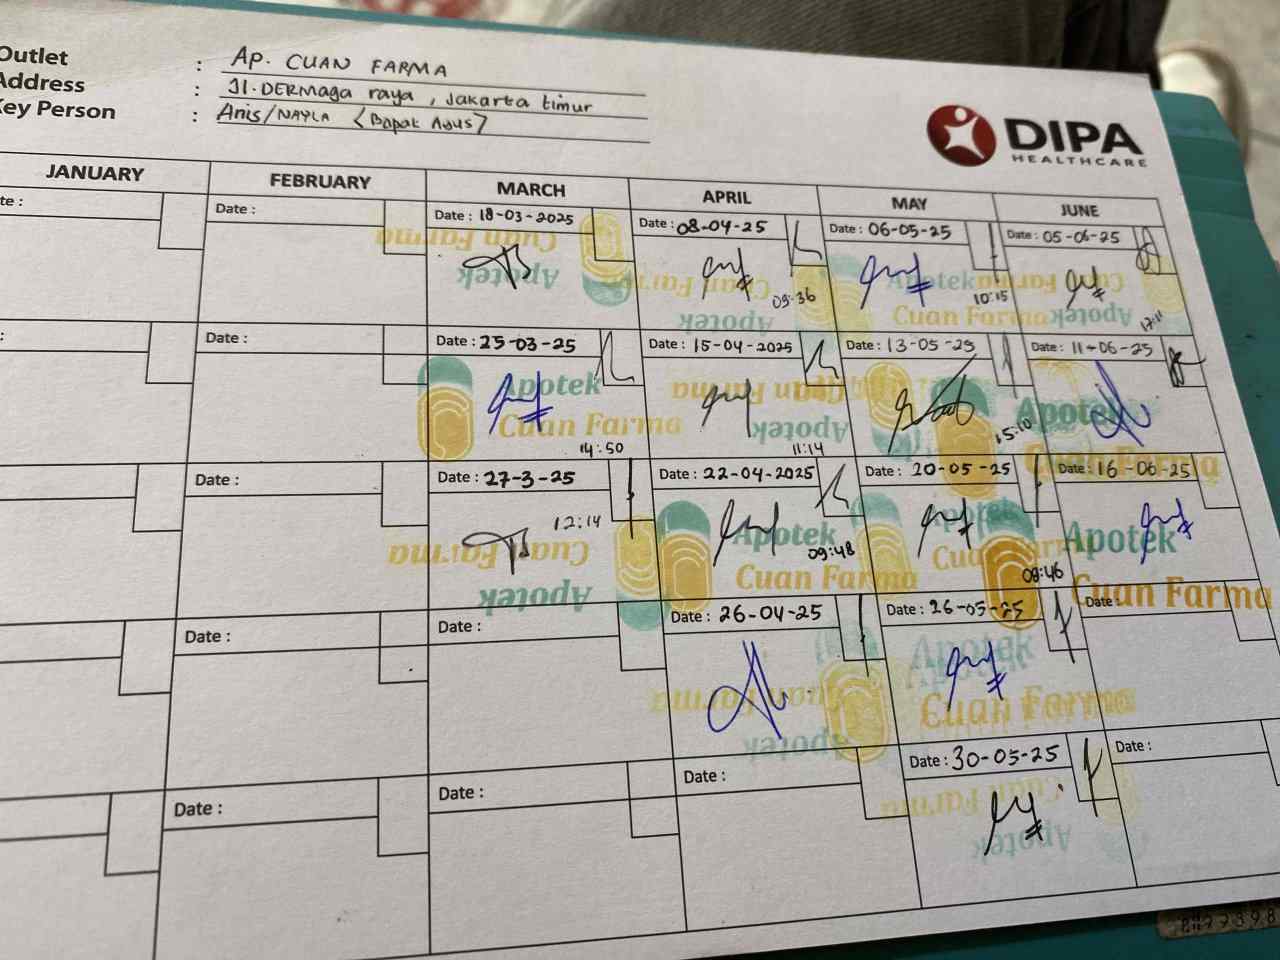 Outlet : AP. CUAN FARMA
Address : Jl. DERMAGA raya, Jakarta timur
Key Person : Anis/NAYLA <Bapak Agus>
DIPA
HEALTHCARE
JANUARY FEBRUARY MARCH APRIL MAY JUNE
Date : Date : 18-03-2025 Date : 08-04-25 Date : 06-05-25 Date : 05-06-25
Cuan Farma Apotek Cuan Farma Apotek Apotek Cuan Farma Cuan Farma Apotek
09:36 10:15 17:11
Date : Date : 25-03-25 Date : 15-04-2025 Date : 13-05-25 Date : 11-06-25
Apotek Cuan Farma Cuan Farma Apotek Apotek Cuan Farma
14:50 11:14 15:10
Date : Date : 27-3-25 Date : 22-04-2025 Date : 20-05-25 Date : 16-06-25
12:14 09:48 09:46
Cuan Farma Apotek Apotek Cuan Farma Apotek Cuan Farma Apotek Cuan Farma
Date : Date : Date : 26-04-25 Date : 26-05-25 Date :
Cuan Farma Apotek Apotek Cuan Farma
Date : Date : Date : Date : 30-05-25 Date :
Cuan Farma Apotek